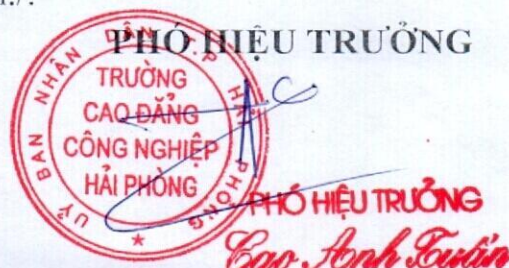 PHÓ HIỆU TRƯỞNG
UỶ BAN NHÂN DÂN T.P HẢI PHÒNG
TRƯỜNG
CAO ĐẲNG
CÔNG NGHIỆP
HẢI PHÒNG
PHÓ HIỆU TRƯỞNG
Cao Anh Tuấn